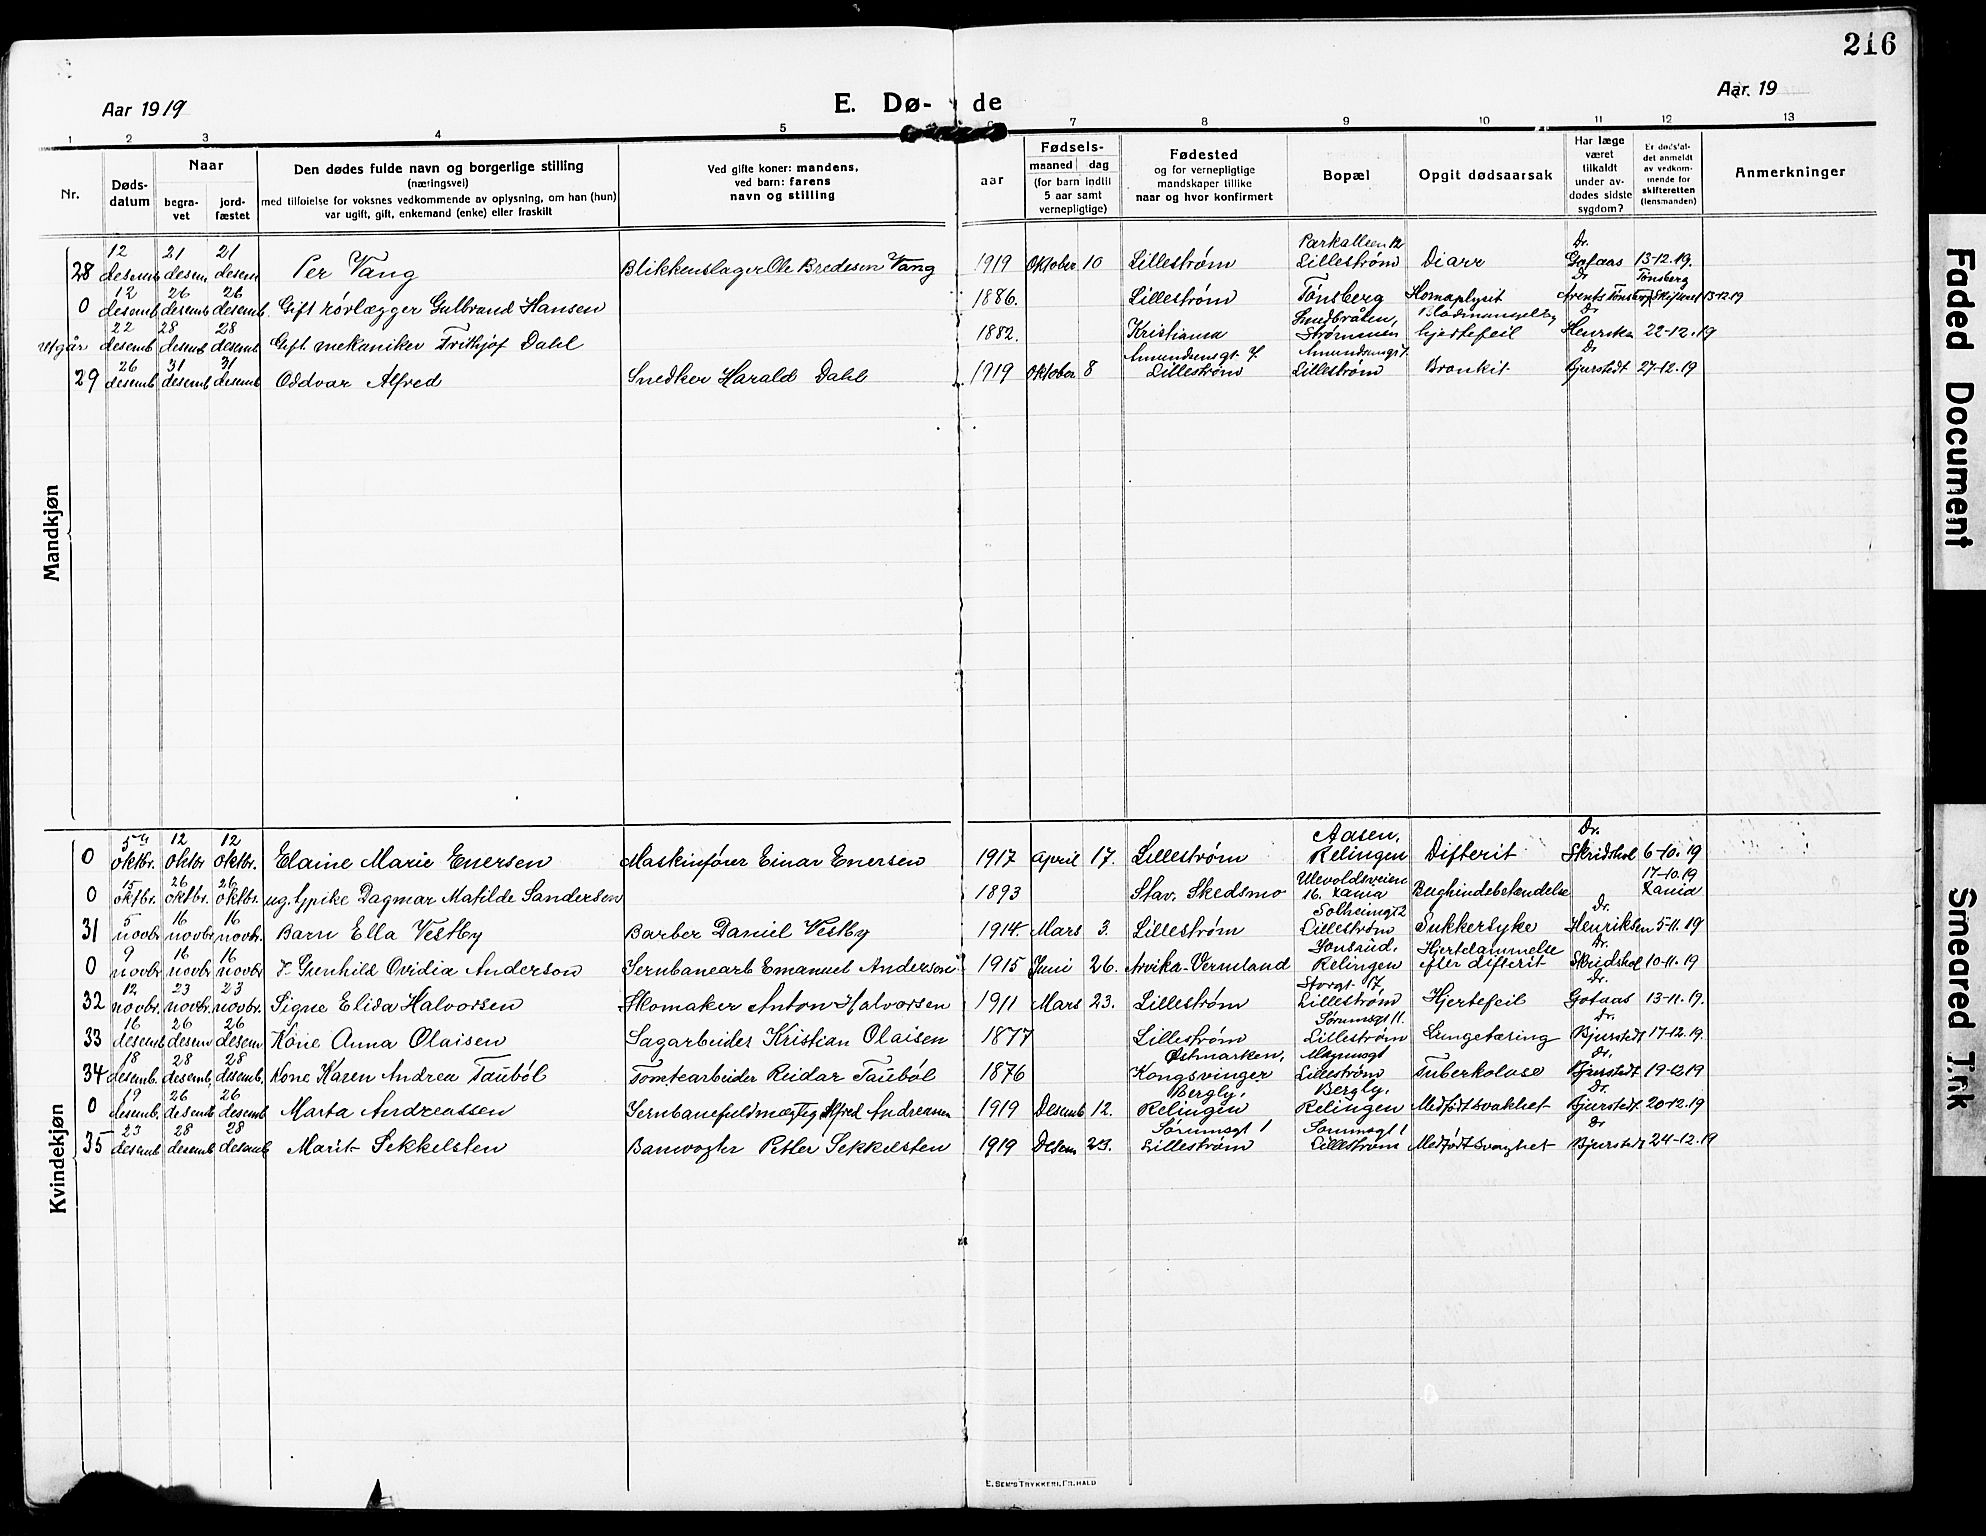 216
Aar 1919
E. Dø- de
Aar. 19
1 2 3 4 5 6 7 8 9 10 11 12 13
Nr.
Døds-
datum
Naar
begra-
vet
jord-
fæstet
Den dødes fulde navn og borgerlige stilling
(næringsvei)
med tilføielse for voksnes vedkommende av oplysning, om han (hun)
var ugift, gift, enkemand (enke) eller fraskilt
Ved gifte koner: mandens,
ved barn: farens
navn og stilling
aar
Fødsels-
maaned dag
(for barn indtil
5 aar samt
vernepligtige)
Fødested
og for vernepligtige
mandskaper tillike
naar og hvor konfirmert
Bopæl
Opgit dødsaarsak
Har læge
været
tilkaldt
under av-
dødes sidste
sygdom?
Er dødsfal-
det anmeldt
av vedkom-
mende for
skifteretten
(lensmanden)
Anmerkninger
Mandkjøn
12 21 21 Parkalleen 12 Dr.
28 desemb desem desem Per Vang Blikkenslager Ole Bredesen Vang 1919 Oktober 10 Lillestrøm Lillestrøm Diarr Gotaas 13-12.19.
12 26 26 Dr Tønsberg
0 desemb. desemb desemb. Gift rörlægger Gulbrand Hansen 1886. Lillestrøm Tønsberg 13-12.19
22 28 28 Dr
utgår desemb desemb desemb Gift mekaniker Frithjof Dahl 1882. Kristiania Strømmen hjertefeil 22-12.19
26 31 31 Amundsensgt. 7 Amundsensgt 7. Dr
29 desemb desemb desemb Oddvar Alfred Snedker Harald Dahl 1919 Oktober 8 Lillestrøm Lillestrøm Bronkit Bjerstedt 27-12.19
Kvindekjøn
5 12 12 Aasen, Dr.
0 oktbr. oktbr oktbr. Elaine Marie Enersen Maskinfører Einar Enersen 1917 April 17. Lillestrøm Relingen Difterit Skridshol 6-10.19
15 26 26 Ulevoldsveien 17-10.19
0 oktbr. oktbr. oktbr. ug. pike Dagmar Matilde Sandersen 1893 Stav. Skedsmo 16. Xania Bughindebetændelse Xania
5 16 16 Solheimgt 2 Dr.
31 novbr. novbr novbr. Barn Ella Vestby Barber Daniel Vestby 1914. Mars 3. Lillestrøm Lillestrøm Sukkersyke Henriksen 5-11.19
9 16 16 Jonsrud, Hjertelammelse Dr.
0 novbr novbr novbr Gunhild Ovidia Anderson Jernbanearb Emanuel Anderson 1915 Juni 26. Arvika-Vermland Relingen efter difterit Skridshol 10-11.19
12 23 23 Storgt 17, Dr.
32 novbr. novbr. novbr. Signe Elida Halvorsen Skomaker Anton Halvorsen 1911 Mars 23. Lillestrøm Lillestrøm Hjertefeil Gotaas 13-11.19.
16 26 26 Sørumsgt 11. Dr.
33 desemb desem desem Kone Anna Olaisen Sagarbeider Kristian Olaisen 1877 Lillestrøm Lillestrøm Lungetæring Bjerstedt 17-12.19.
18 28 28 Østmarken, Dr.
34 desemb. desemb. desemb. Kone Karen Andrea Tauböl Tomtearbeider Reidar Tauböl 1876 Kongsvinger Lillestrøm Tuberkolose Bjerstedt 19-12.19
19 26 26 Bergly, Bergly, Dr.
0 desemb. desemb desemb Marta Andreassen Jernbanefuldmægtig Alfred Andreassen 1919 Desemb 12. Relingen Relingen Medfødtsvakhet Bjerstedt. 20-12.19
23 28 28 Sørumsgt 1 Sørumsgt 1 Dr
35 desemb desemb desemb Marit Sekkelsten Banevogter Petter Sekkelsten 1919 Desem 23. Lillestrøm Lillestrøm Medfødtsvaghet Bjerstedt 24-12.19
E. Sem's Trykkeri, Fr.hald
Faded Document
Smeared Ink